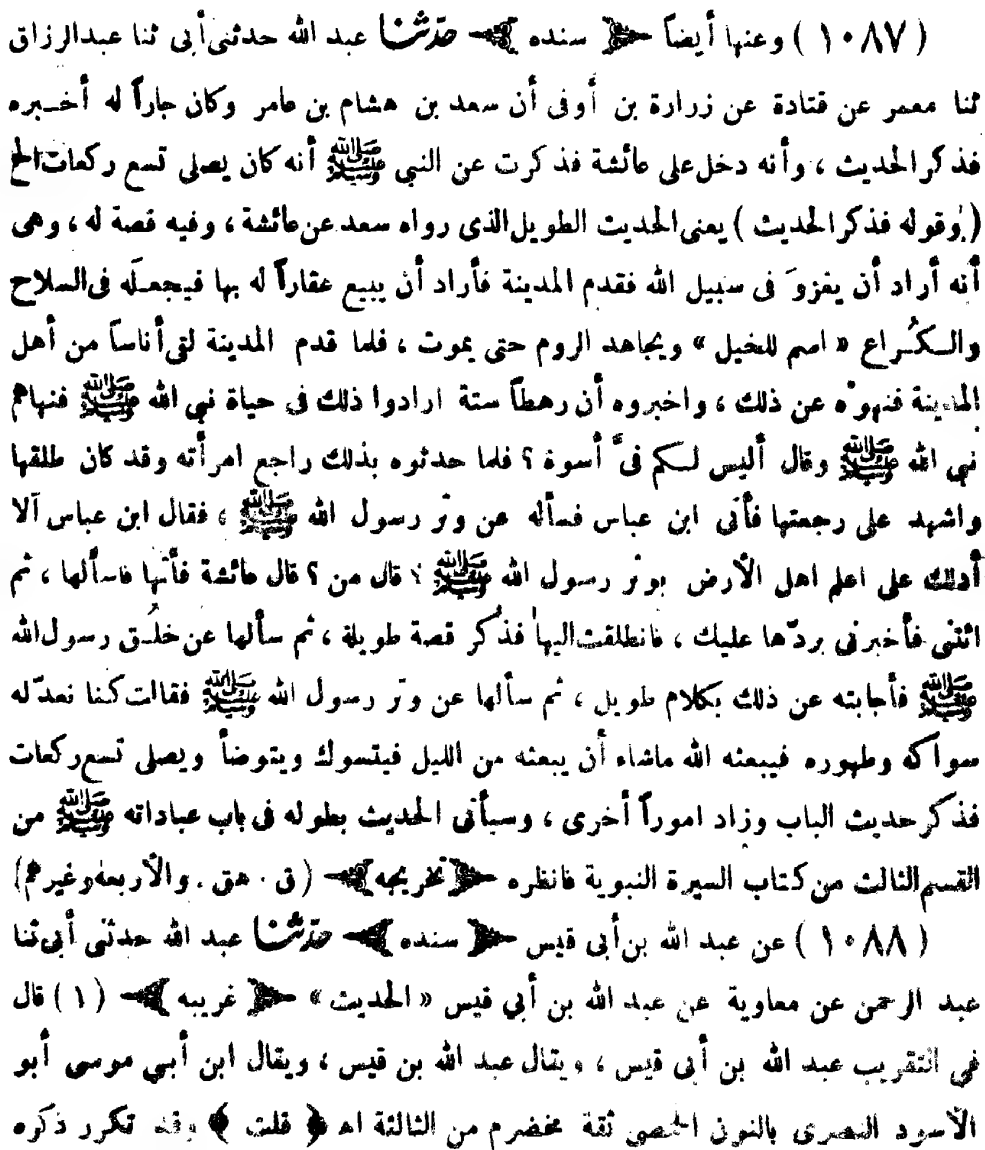 ( ١٠٨٧ ) وعنها أيضاً ﴿ سنده ﴾ حدّثنا عبد الله حدثنى أبى ثنا عبدالرزاق
ثنا معمر عن قتادة عن زرارة بن أوفى أن سعد بن هشام بن عامر وكان جاراً له أخـبره
فذكر الحديث ، وأنه دخل على عائشة فذكرت عن النبي ﷺ أنه كان يصلى تسع ركعات الخ
( وقوله فذكر الحديث ) يعنى الحديث الطويل الذى رواه سعد عن عائشة ، وفيه قصة له ، وهى
أنه أراد أن يغزوَ فى سبيل الله فقدم المدينة فأراد أن يبيع عقاراً له بها فيجعـلَه فى السلاح
والـكُـراع « اسم للخيل » ويجاهد الروم حتى يموت ، فلما قدم المدينة لقى أناساً من أهل
المدينة فنهوْه عن ذلك ، واخبروه أن رهطاً ستة ارادوا ذلك فى حياة نبي الله ﷺ فنهاهم
نبي الله ﷺ وقال أليس لـكم فىَّ أسوة ؟ فلما حدثوه بذلك راجع امرأته وقد كان طلقها
واشهد على رجعتها فأتى ابن عباس فسأله عن وتر رسول الله ﷺ ، فقال ابن عباس ألا
أدلك على اعلم اهل الأرض بوتر رسول الله ﷺ ؟ قال من ؟ قال عائشة فأتها فاسألها ، ثم
ائتنى فأخبرنى بردّها عليك ، فانطلقت اليها فذكر قصة طويلة ، ثم سألها عن خلُـق رسول الله
ﷺ فأجابته عن ذلك بكلام طويل ، ثم سألها عن وتر رسول الله ﷺ فقالت كنا نعدّ له
سواكه وطهوره فيبعثه الله ماشاء أن يبعثه من الليل فيتسوك ويتوضأ ويصلى تسع ركعات
فذكر حديث الباب وزاد اموراً أخرى ، وسيأتى الحديث بطوله فى باب عباداته ﷺ من
القسم الثالث من كتاب السيرة النبوية فانظره ﴿ تخريجه ﴾ ( ق . هق . والأربعة وغيرهم )
( ١٠٨٨ ) عن عبد الله بن أبى قيس ﴿ سنده ﴾ حدّثنا عبد الله حدثنى أبى ثنا
عبد الرحمن عن معاوية عن عبد الله بن أبي قيس « الحديث » ﴿ غريبه ﴾ ( ١ ) قال
في التقريب عبد الله بن أبى قيس ، ويقال عبد الله بن قيس ، ويقال ابن أبـي موسى أبو
الأسود النصرى بالنون الحمصى ثقة مخضرم من الثالثة اه ﴿ قلت ﴾ وقد تكرر ذكره